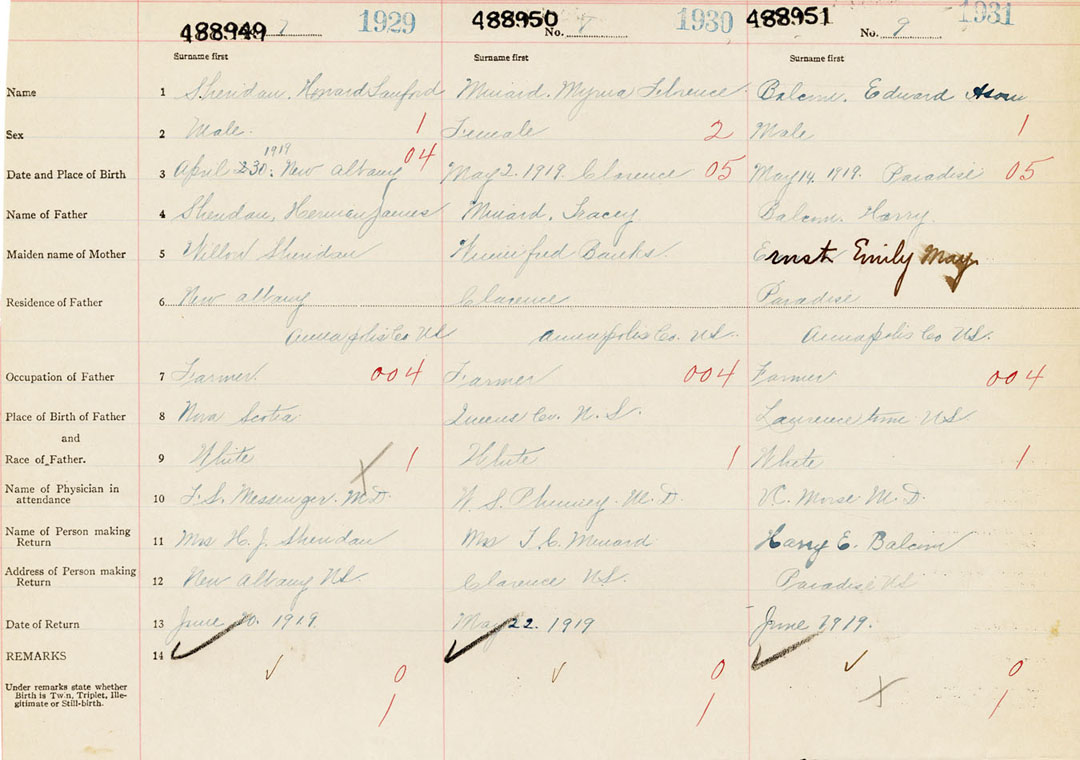 488949 7 1929 488950 No. 7 1930 488951 No. 9 1931
Surname first Surname first Surname first
Name 1 Sheridan, Howard Sanford Minard, Myrna Florence Balcom, Edward
Sex 2 Male. 1 Female 2 Male 1
1919
Date and Place of Birth 3 April 30, New Albany 04 May 2. 1919. Clarence 05 May 14. 1919. Paradise 05
Name of Father 4 Sheridan, Herman James Minard, Tracey Balcom. Harry
Maiden name of Mother 5 Sheridan Winnifred Banks. Ernst Emily May
Residence of Father 6 New Albany Clarence Paradise
Annapolis Co NS Annapolis Co. NS. Annapolis Co NS.
Occupation of Father 7 Farmer. 004 Farmer 004 Farmer 004
Place of Birth of Father 8 Nova Scotia Queens Co. N. S. Lawrencetown NS
and
Race of Father. 9 White 1 White 1 White 1
Name of Physician in
attendance 10 Messenger. M.D. Phinney. M. D. Morse M. D.
Name of Person making
Return 11 Mrs H. J. Sheridan Mrs T. C. Minard Harry E. Balcom
Address of Person making
Return 12 New Albany NS Clarence NS. Paradise NS
Date of Return 13 June 10. 1919 May 22. 1919 June 1919.
REMARKS 14
0 0 0
Under remarks state whether
Birth is Twin, Triplet, Ille-
gitimate or Still-birth. 1 1 1